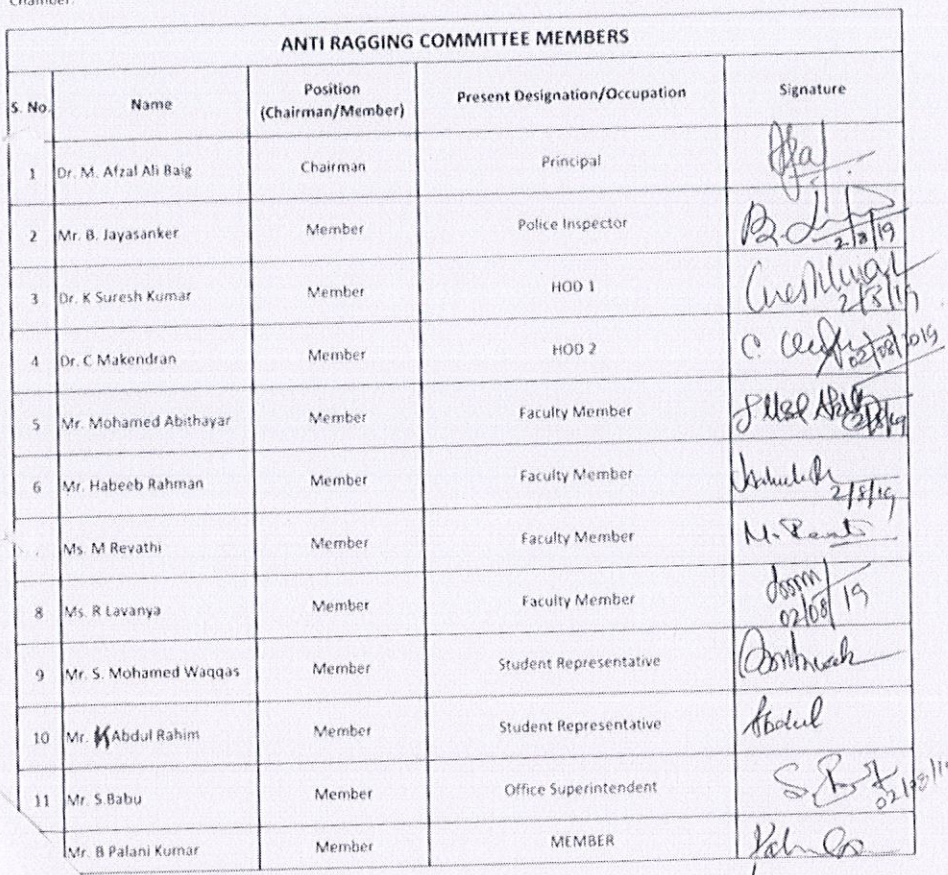 Chamber.
ANTI RAGGING COMMITTEE MEMBERS
S. No. Name Position (Chairman/Member) Present Designation/Occupation Signature
1 Dr. M. Afzal Ali Baig Chairman Principal
2 Mr. B. Jayasanker Member Police Inspector 2/8/19
3 Dr. K Suresh Kumar Member HOD 1 2/8/19
4 Dr. C Makendran Member HOD 2 C. 02/08/2019
5 Mr. Mohamed Abithayar Member Faculty Member
6 Mr. Habeeb Rahman Member Faculty Member 2/8/19
Ms. M Revathi Member Faculty Member
8 Ms. R Lavanya Member Faculty Member 02/08/19
9 Mr. S. Mohamed Waqqas Member Student Representative
10 Mr. K Abdul Rahim Member Student Representative Abdul
11 Mr. S.Babu Member Office Superintendent
Mr. B Palani Kumar Member MEMBER